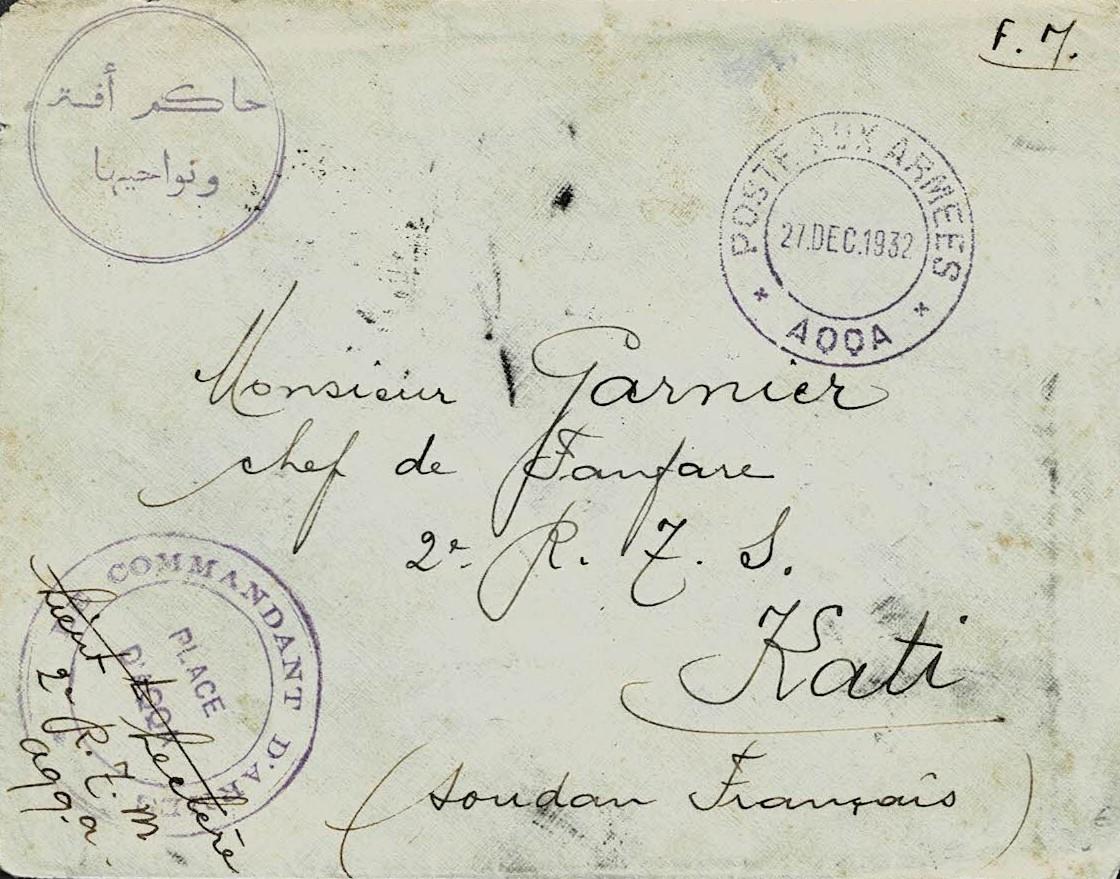 F. M.
حاكم أقة
ونواحيها
POSTE AUX ARMEES
27.DEC.1932
* AQQA *
Monsieur Garnier
chef de Fanfare
2e R. T. S.
Kati
(Soudan Français)
COMMANDANT D'AR
PLACE
D'AQQA
Lieut
2e R. T. M
aqqa.